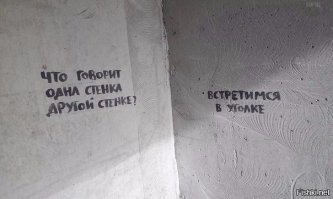 ЧТО ГОВОРИТ
ОДНА СТЕНКА
ДРУГОЙ СТЕНКЕ?
ВСТРЕТИМСЯ
В УГОЛКЕ
Fishki.net